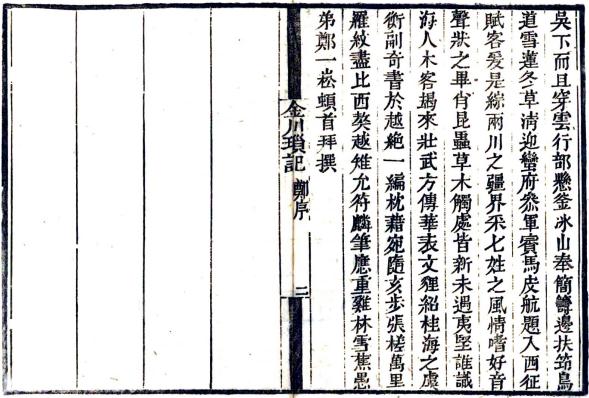 吳下而且穿雲行部懸釜冰山奉簡籌邊扶筇鳥
道雪蓮冬草清迎蠻府叅軍賨馬皮航題入西征
賦客爰是綜兩川之疆界采七姓之風情嗜好音
聲狀之畢肖昆蟲草木觸處皆新未過夷堅誰識
海人木客朅來壯武方傳華表文狸紹桂海之虞
衡副奇書於越絶一編枕藉宛隨亥步張槎萬里
羅紋盡比西獒越雉允符麟筆應重雞林雪蕉愚
弟鄭一崧頓首拜撰
金川瑣記
鄭序
二